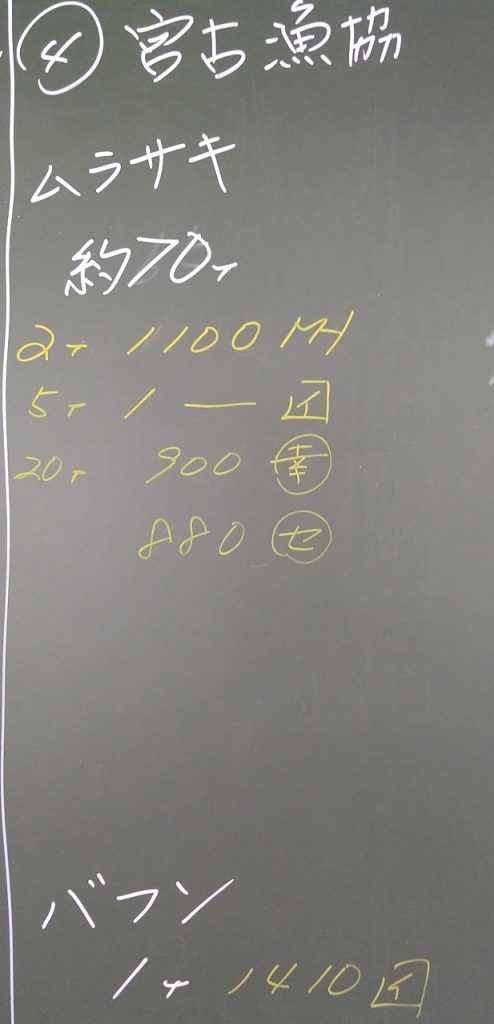 ④ 宮古漁協
ムラサキ
約70T
2T 1100 MH
5T 1 — イ
20T 900 幸
880 セ
バフン
1T 1410 イ